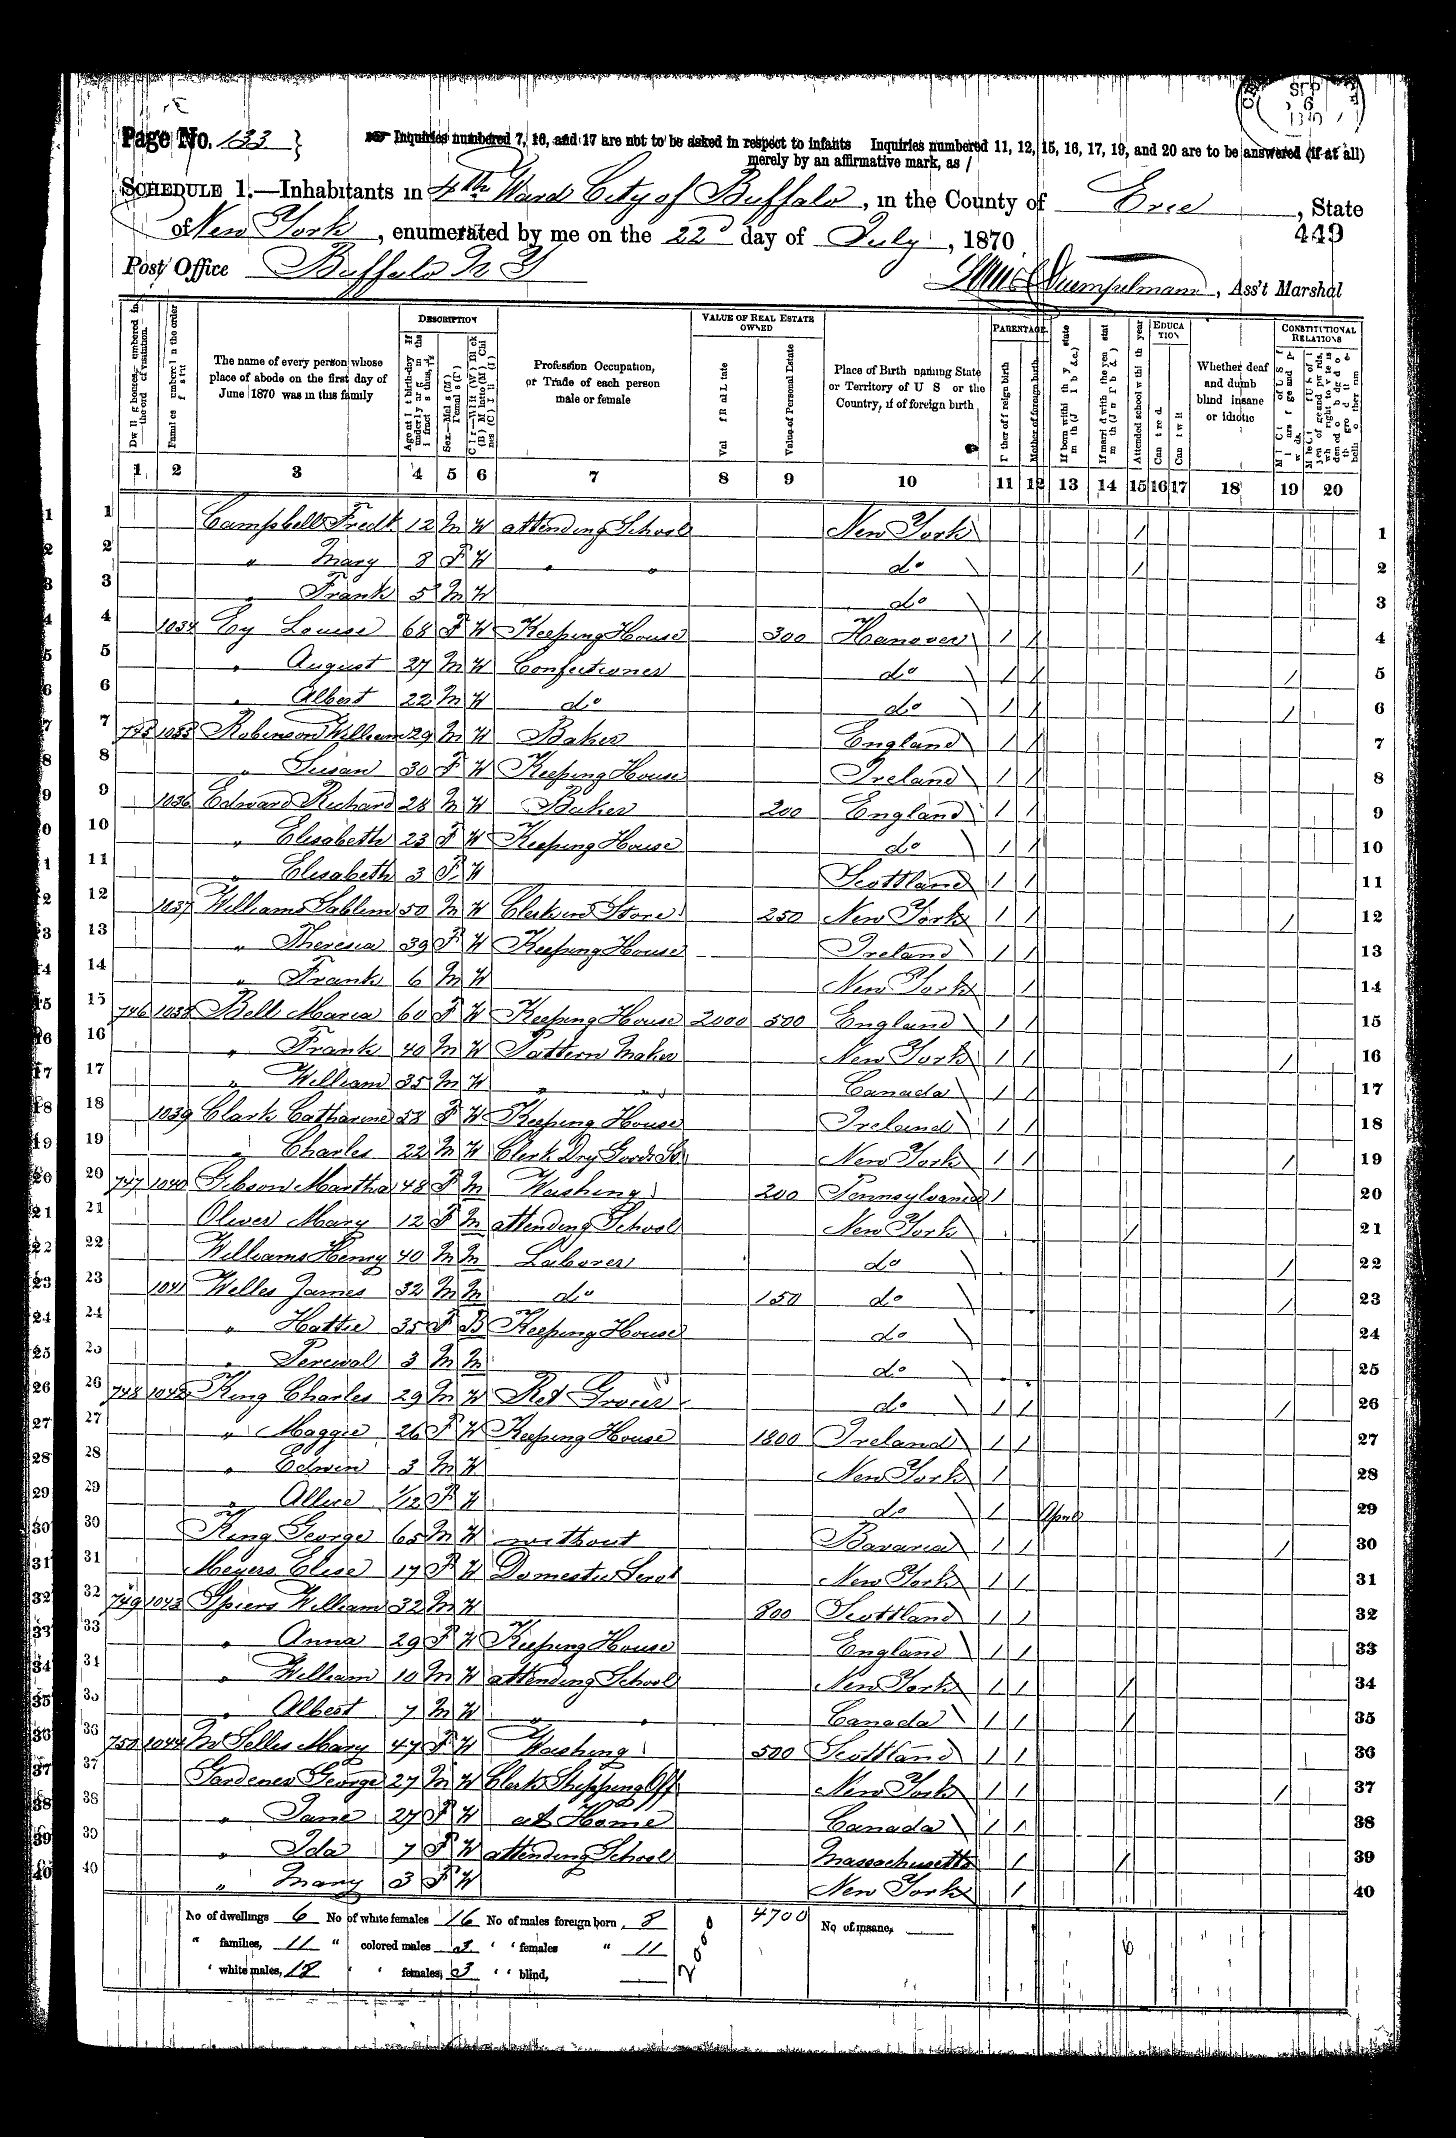 SEP 6 1870
Page No. 133 } Inquiries numbered 7, 16, and 17 are not to be asked in respect to infants Inquiries numbered 11, 12, 15, 16, 17, 19, and 20 are to be answered (if at all)
merely by an affirmative mark, as /
SCHEDULE 1.—Inhabitants in 4th Ward City of Buffalo, in the County of Erie, State
of New York, enumerated by me on the 22d day of July, 1870
449
Post Office Buffalo N Y
, Ass't Marshal
DESCRIPTION VALUE OF REAL ESTATE OWNED PARENTAGE EDUCATION CONSTITUTIONAL RELATIONS
The name of every person whose place of abode on the first day of June 1870 was in this family
Profession Occupation, or Trade of each person male or female
Value of Personal Estate
Place of Birth naming State or Territory of U S or the Country, if of foreign birth
Mother of foreign birth
Whether deaf and dumb blind insane or idiotic
1 2 3 4 5 6 7 8 9 10 11 12 13 14 15 16 17 18 19 20
1 Campbell Fredk 12 M W attending School New York / 1
2 " Mary 8 F W " " do / 2
3 " Frank 5 M W do 3
4 1034 Ey Louise 68 F W Keeping House 300 Hanover / / 4
5 " August 27 M W Confectioner do / / / 5
6 " Albert 22 M W do do / / / 6
7 1035 Robinson William 29 M W Baker England / / 7
8 " Susan 30 F W Keeping House Ireland / / 8
9 1036 Edward Richard 28 M W Baker 200 England / / 9
10 " Elisabeth 23 F W Keeping House do / / 10
11 " Elisabeth 3 F W Scottland / / 11
12 1037 Williams 50 M W Clerk in Store 250 New York / / / 12
13 " Theresia 39 F W Keeping House Ireland / / 13
14 " Frank 6 M W New York / 14
15 746 1038 Bell Maria 60 F W Keeping House 2000 500 England / / 15
16 " Frank 40 M W Pattern Maker New York / / / 16
17 " William 35 M W " " Canada / / 17
18 1039 Clark Catharine 58 F W Keeping House Ireland / / 18
19 " Charles 22 M W Clerk Dry Goods St. New York / / / 19
20 747 1040 Gibson Martha 48 F M Washing 200 Pennsylvania / 20
21 Oliver Mary 12 F M attending School New York / 21
22 Williams Henry 40 M M Laborer do / 22
23 1041 Welles James 32 M M do 150 do / 23
24 " Hattie 35 F B Keeping House do 24
25 " Percival 3 M M do 25
26 748 1042 King Charles 29 M W Ret Grocer do / / / 26
27 " Maggie 26 F W Keeping House 1800 Ireland / / 27
28 " Edwin 3 M W New York / 28
29 " Allice 1/12 F W do / April 29
30 King George 65 M W without Bavaria / / / 30
31 Meyers Elise 17 F W Domestic Servt New York / / 31
32 749 1043 Spiers William 32 M W 800 Scottland / / 32
33 " Anna 29 F W Keeping House England / / 33
34 " William 10 M W attending School New York / / / 34
35 " Albert 7 M W " " Canada / / / 35
36 750 1044 Mc Selles Mary 47 F W Washing 500 Scottland / / 36
37 Gardener George 27 M W Clerk Shipping Off New York / / / 37
38 " Jane 27 F W at Home Canada / / 38
39 " Ida 7 F W attending School Massachusetts / / 39
40 " Mary 3 F W New York / 40
No of dwellings 6 No of white females 16 No of males foreign born, 8 2000 4700 No of insane, 6
" families, 11 " colored males 3 " " females " 11
" white males, 18 " " females, 3 " " blind,